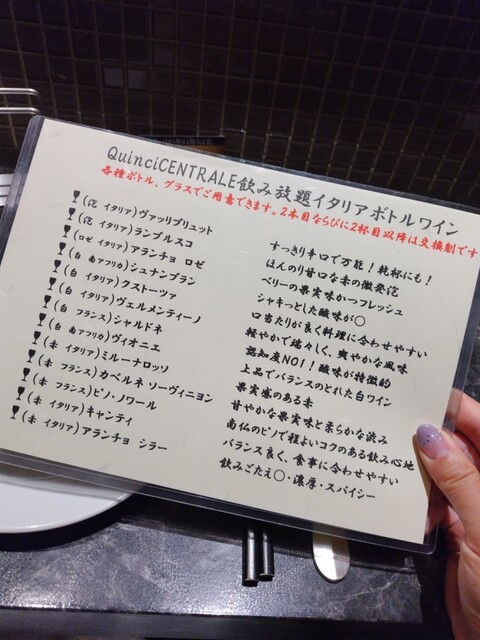 QuinciCENTRALE飲み放題イタリアボトルワイン
各種ボトル、グラスでご用意できます。2本目ならびに2杯目以降は交換制です
(泡 イタリア)ヴァッリブリュット すっきり辛口で万能！乾杯にも！
(泡 イタリア)ランブルスコ ほんのり甘口な赤の微発泡
(ロゼ イタリア)アランチョ ロゼ ベリーの果実味かつフレッシュ
(白 南アフリカ)シュナンブラン シャキっとした酸味が〇
(白 イタリア)クストーツァ 口当たりが良く料理に合わせやすい
(白 イタリア)ヴェルメンティーノ 軽やかで瑞々しく、爽やかな風味
(白 フランス)シャルドネ 認知度NO1！酸味が特徴的
(白 南アフリカ)ヴィオニエ 上品でバランスのとれた白ワイン
(赤 イタリア)ミルーナロッソ 果実感のある赤
(赤 フランス)カベルネ ソーヴィニヨン 甘やかな果実味と柔らかな渋み
(赤 フランス)ピノ・ノワール 南仏のピノで程よいコクのある飲み心地
(赤 イタリア)キャンティ バランス良く、食事に合わせやすい
(赤 イタリア)アランチョ シラー 飲みごたえ〇・濃厚・スパイシー